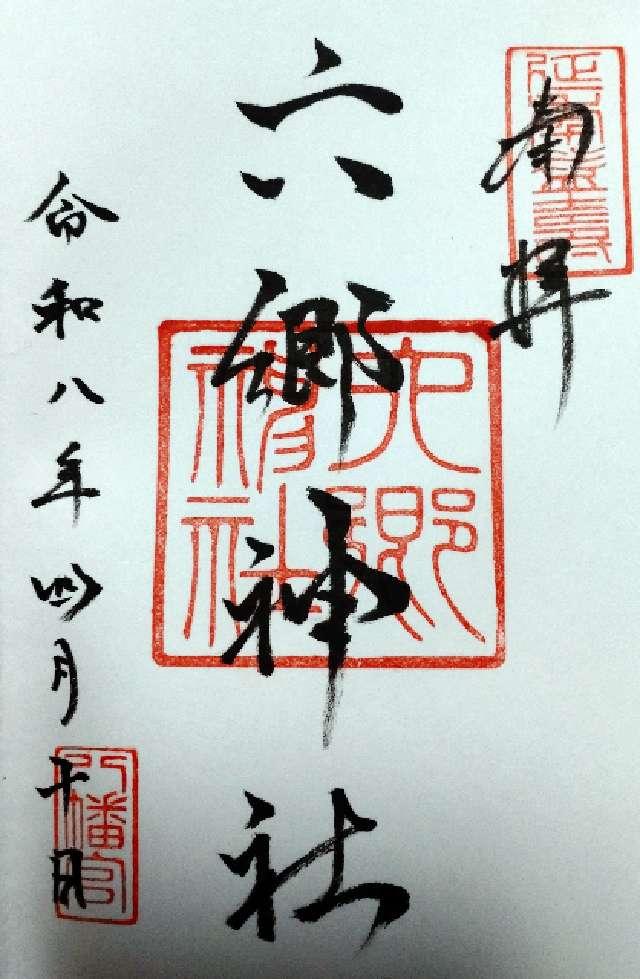 南拝
六郷神社
六郷神社
令和八年四月十日
八幡宮